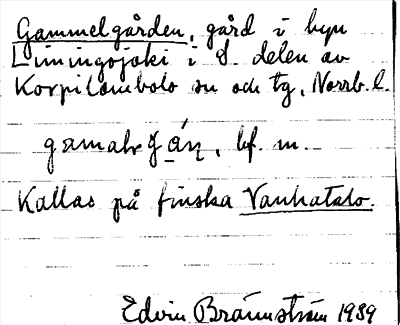 Gammelgården, gård i byn
Liviningojoki i S. delen av
Korpilombolo sn och tg, Norrb. l.
bf. m.
Kallas på finska Vanhatalo.
Edvin Brännström 1939